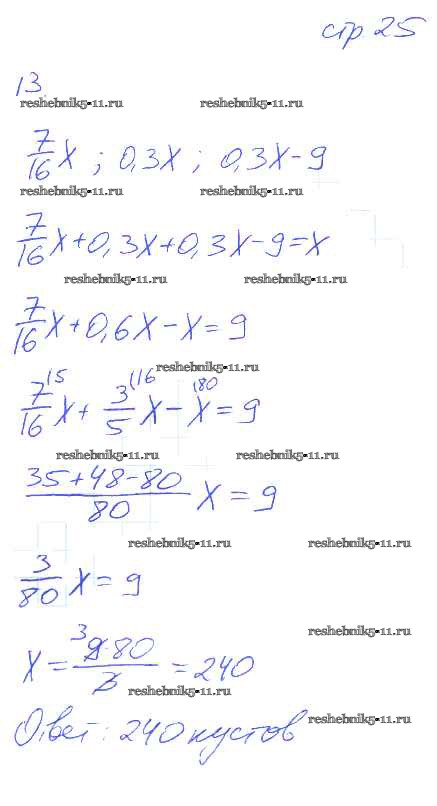 стр 25
13.
reshebnik5-11.ru reshebnik5-11.ru
7/16 x ; 0,3x ; 0,3x-9
reshebnik5-11.ru reshebnik5-11.ru
7/16 x+0,3x+0,3x-9=x
reshebnik5-11.ru reshebnik5-11.ru
7/16 x+0,6x-x=9
reshebnik5-11.ru
7/16 (5 x + 3/5 (16 x - x (80 = 9
reshebnik5-11.ru reshebnik5-11.ru
35+48-80/80 x = 9
reshebnik5-11.ru reshebnik5-11.ru
3/80 x = 9
reshebnik5-11.ru
x = 3 9·80/3 = 240
reshebnik5-11.ru
Ответ: 240 кустов
reshebnik5-11.ru